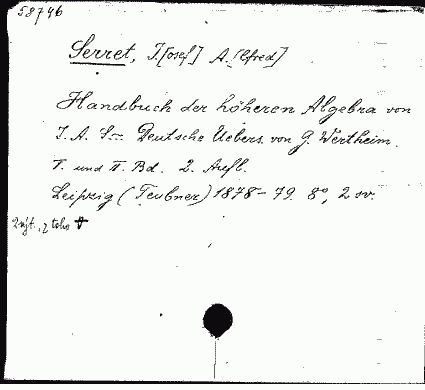 58746
Serret, J.[osef] A.[lfred]
Handbuch der höheren Algebra von
J. A. S= Deutsche Uebers. von G. Wertheim.
I. und II. Bd. 2. Aufl.
Leipzig (Teubner) 1878-79. 8°, 2 sv.
2 výt., z toho